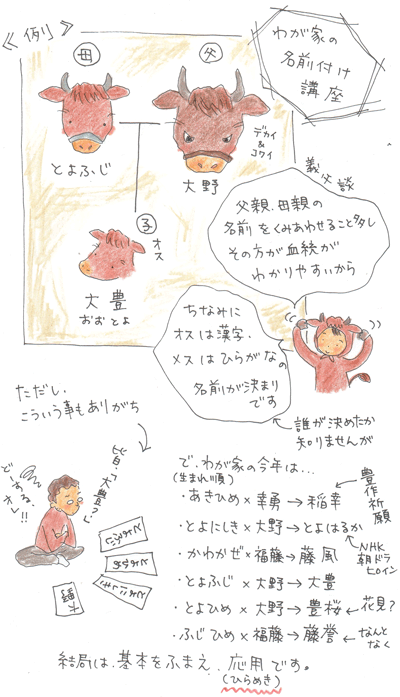 《例》
わが家の
名前付け
講座
母
父
とよふじ
大野
デカイ
&
コワイ
子
オス
大豊
おおとよ
義父談
父親、母親の
名前をくみあわせること多し
その方が血統が
わかりやすいから
ちなみに
オスは漢字、
メスはひらがなの
名前が決まり
です
誰が決めたか
知りませんが
ただし、
こういう事もありがち
皆「大豊?」
どーする、
オレ!!
で、わが家の今年は…
(生まれ順)
・あきひめ×幸勇→稲幸
豊作祈願
・とよにしき×大野→とよはるか
NHK
朝ドラ
ヒロイン
・かわかぜ×福藤→藤風
・とよふじ×大野→大豊
・とよひめ×大野→豊桜
花見?
・ふじひめ×福藤→藤誉
なんと
なく
結局は、基本をふまえ、応用です。
(ひらめき)